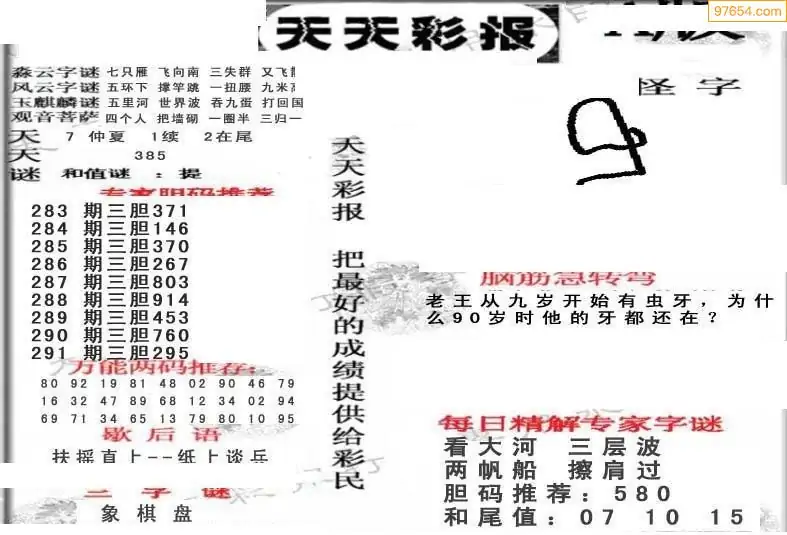 97654.com
天天彩报
怪字
森云字谜 七只雁 飞向南 三失群 又飞
风云字谜 五环下 撑竿跳 一扭腰 九米
玉麒麟谜 五里河 世界波 吞九蛋 打回国
观音菩萨 四个人 把墙砌 一圈半 三归一
天 7 仲夏 1续 2在尾
天 385
谜 和值谜 : 提
专家胆码推荐
283 期三胆371
284 期三胆146
285 期三胆370
286 期三胆267
287 期三胆803
288 期三胆914
289 期三胆453
290 期三胆760
291 期三胆295
万能两码推荐:
80 92 19 81 48 02 90 46 79
16 32 47 89 68 12 34 02 94
69 71 34 65 13 79 80 10 95
歇后语
扶摇直上--纸上谈兵
三字谜
象棋盘
天天彩报 把最好的成绩提供给彩民
脑筋急转弯
老王从九岁开始有虫牙，为什
么90岁时他的牙都还在？
每日精解专家字谜
看大河 三层波
两帆船 擦肩过
胆码推荐: 580
和尾值: 07 10 15